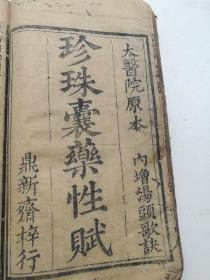 太醫院原本
內增湯頭歌訣
珍珠囊藥性賦
鼎新齋梓行